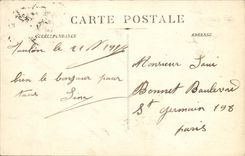 CARTE POSTALE
CORRESPONDANCE
ADRESSE
Toulon le 21
bien le bonjour pour
tous
Monsieur
Bonnet Boulevard
St Germain 198
paris